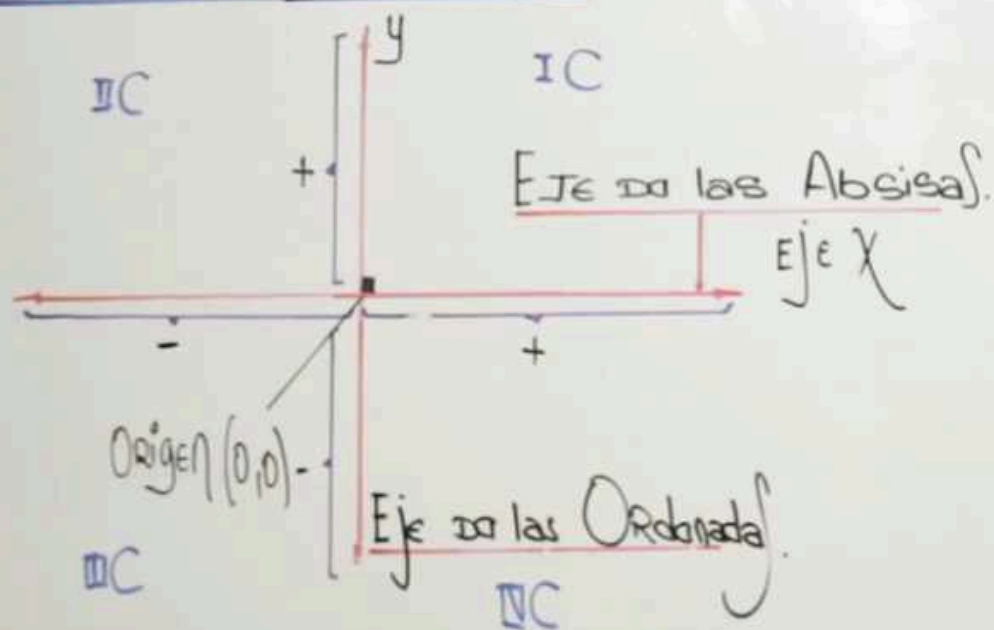 y
II C
I C
+
Eje de las Absisas.
Eje X
-
+
Origen (0,0)
-
Eje de las Ordenadas.
III C
IV C